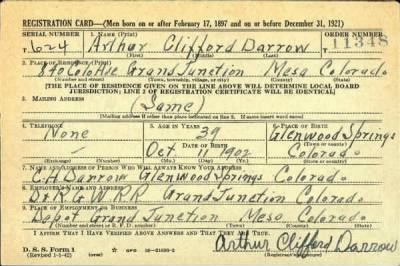 REGISTRATION CARD—(Men born on or after February 17, 1897 and on or before December 31, 1921)
SERIAL NUMBER 1. NAME (Print) ORDER NUMBER
T 624 Arthur Clifford Darrow 11348
(First) (Middle) (Last)
2. PLACE OF RESIDENCE (Print)
840 Colo Ave Grand Junction Mesa Colorado
(Number and street) (Town, township, village, or city) (County) (State)
[THE PLACE OF RESIDENCE GIVEN ON THE LINE ABOVE WILL DETERMINE LOCAL BOARD
JURISDICTION; LINE 2 OF REGISTRATION CERTIFICATE WILL BE IDENTICAL]
3. MAILING ADDRESS
(Same)
[Mailing address if other than place indicated on line 2. If same insert word same]
4. TELEPHONE 5. AGE IN YEARS 6. PLACE OF BIRTH
None 39 Glenwood Springs
DATE OF BIRTH (Town or county)
Oct 11 1902 Colorado
(Exchange) (Number) (Mo.) (Day) (Yr.) (State or country)
7. NAME AND ADDRESS OF PERSON WHO WILL ALWAYS KNOW YOUR ADDRESS
C. H. Darrow Glenwood Springs Colorado
8. EMPLOYER'S NAME AND ADDRESS
D & R G W RR Grand Junction Colorado
9. PLACE OF EMPLOYMENT OR BUSINESS
Depot Grand Junction Mesa Colorado
(Number and street or R. F. D. number) (Town) (County) (State)
I AFFIRM THAT I HAVE VERIFIED ABOVE ANSWERS AND THAT THEY ARE TRUE.
D. S. S. Form 1
(Revised 1-1-42) (over)
Arthur Clifford Darrow
(Registrant's signature)